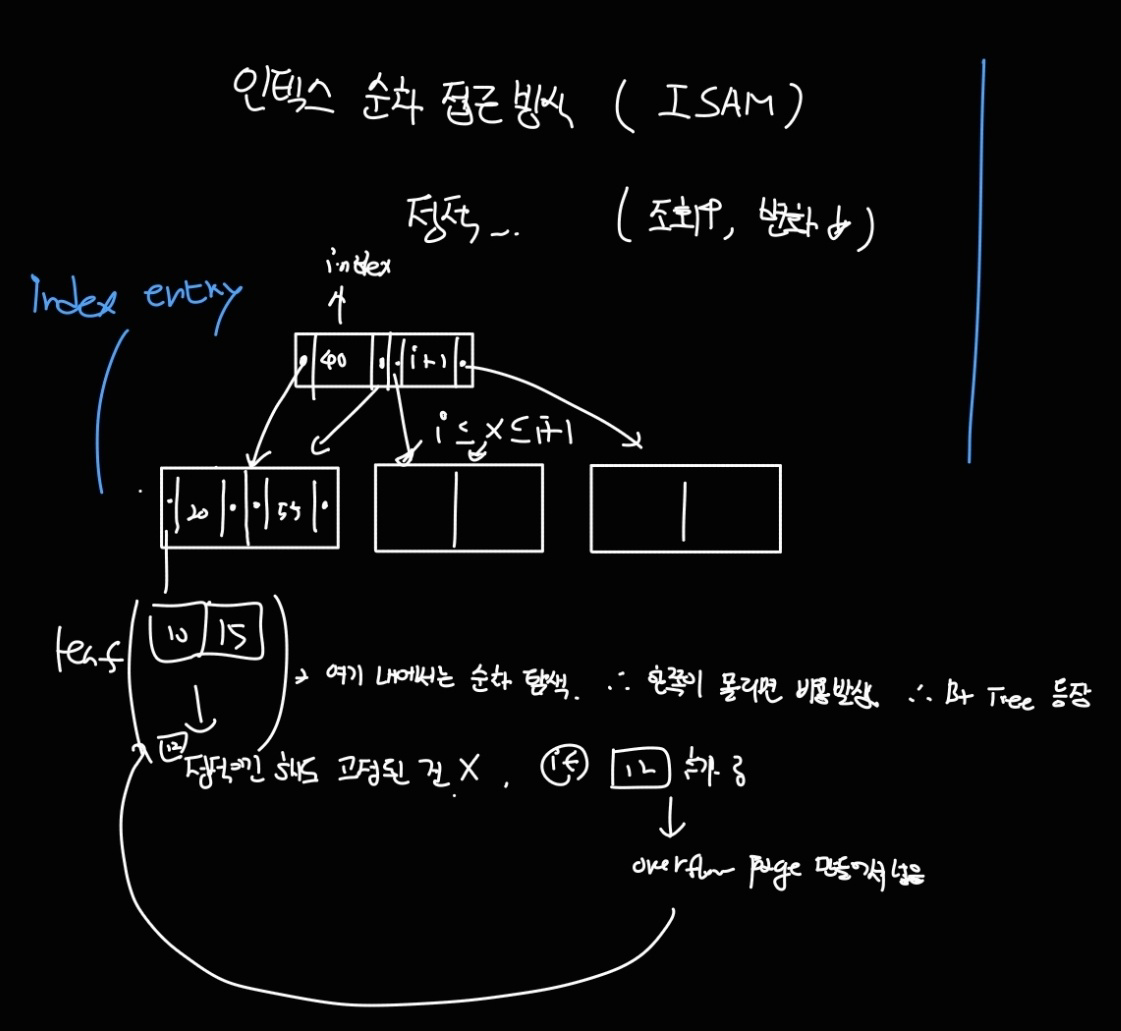 인덱스 순차 접근 방식 ( ISAM )
정적... (조회↑, 변화↓)
index
Index entry
40 i+1
i ≤ x ≤ i+1
20 55
leaf
10 15
→ 여기 내에서는 순차 탐색. ∴ 한쪽이 몰리면 비용발생. ∴ B+ Tree 등장
12
정적이긴 해도 고정된 건 X. if 12 추가 시
overflow page 만들어서 넣음